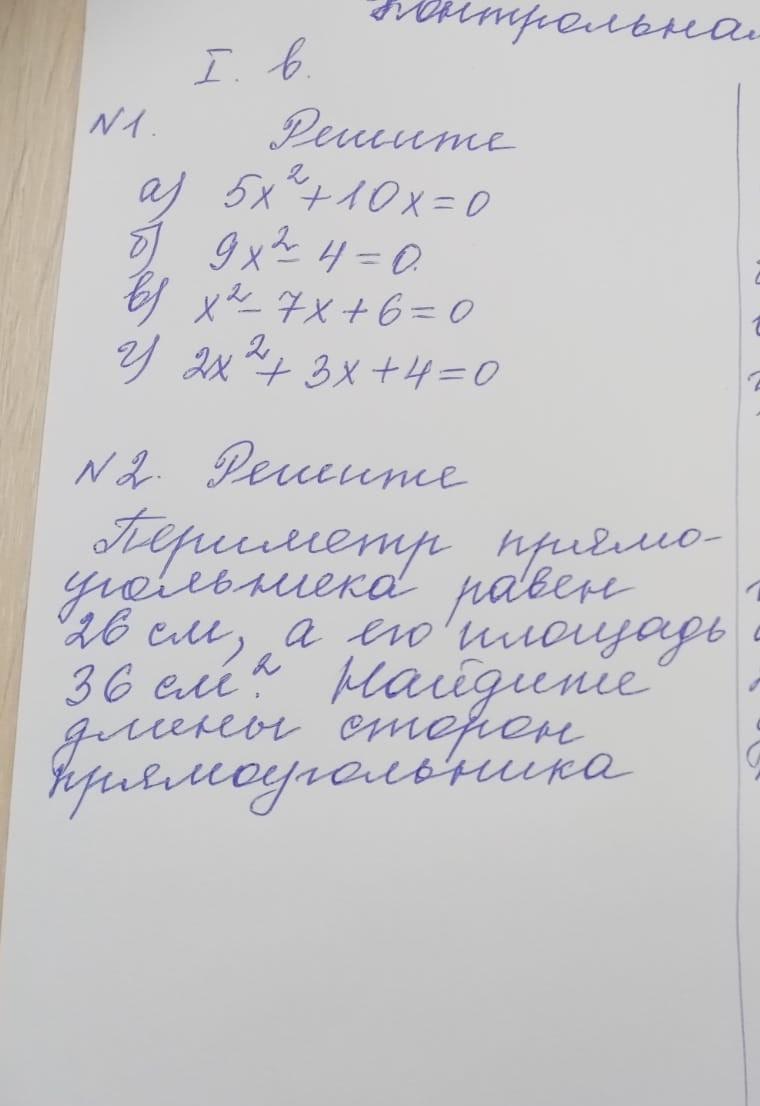 Контрольная
I. в.
N1. Решите
а) 5x²+10x=0
б) 9x²-4=0.
в) x²-7x+6=0
г) 2x²+3x+4=0
N2. Решите
Периметр прямо-
угольника равен
26 см, а его площадь
36 см². Найдите
длины сторон
прямоугольника